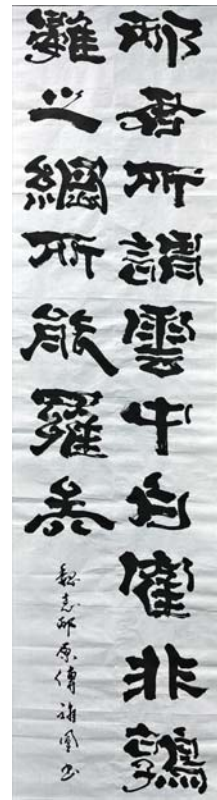 邴君所謂雲中白鶴非鶉
鷃之網所能羅矣
魏志邴原傳